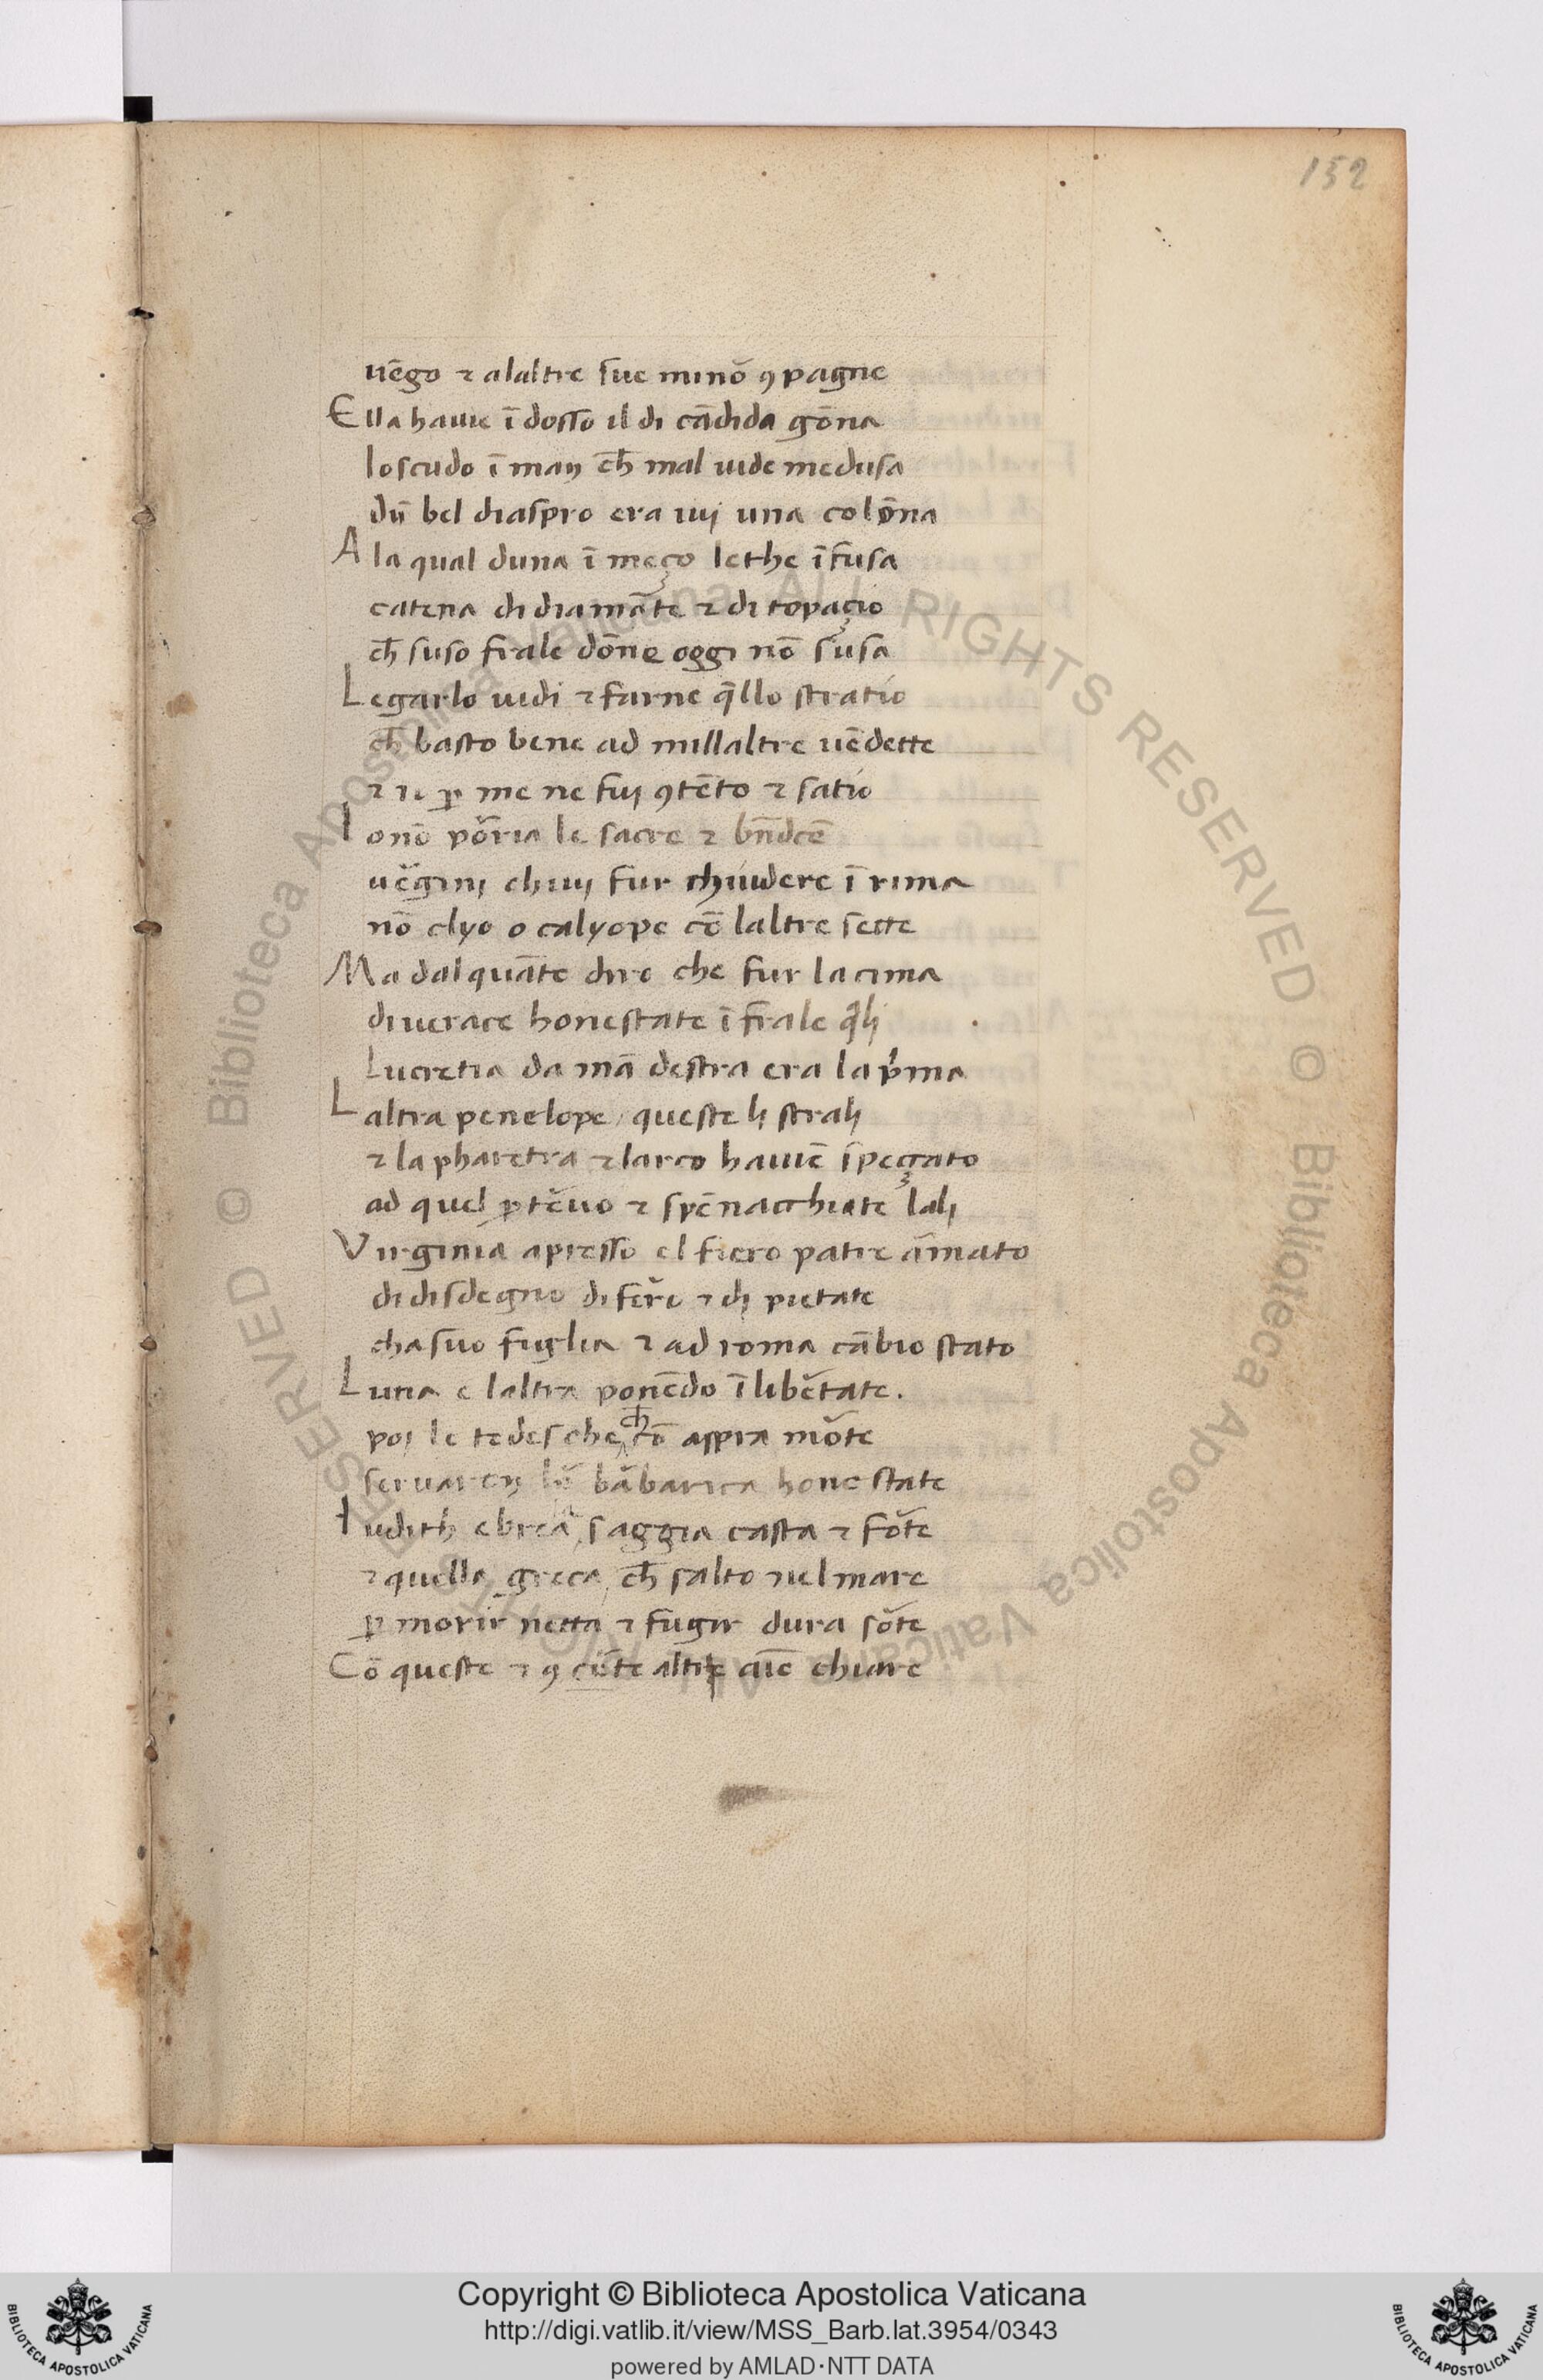 152
uēgo ⁊ alaltre sue minō ꝯpagne
Ella haue ī dosso il di cādida gōna
loscudo ī man ch̄ mal uide medusa
dū bel diaspro era iuj una colōna
A la qual duna ī meço lethe īfusa
catena di diamāte ⁊ di topaçio
ch̄ suso frale dōne oggi nō susa
Legarlo uidi ⁊ farne q̄llo stratio
ch̄ basto bene ad millaltre uēdette
⁊ io ꝑ me ne fuj ꝯtēto ⁊ satio
Ionō pōria le sacre ⁊ bn̄dcē
uēginj chiuj fur chiudere ī rima
nō clyo o calyope cō laltre sette
Ma dalquāte diro che fur la cima
di uerace honestate ī frale q̄lj
Lucretia da mā destra era la p̄ma
Laltra penelope / queste lj stralj
⁊ la pharetra ⁊ larco hauiē speçato
ad quel ꝓtēuo ⁊ spēnacchiate lalj
Virginia apresso el fiero patre āmato
di disdegno di fēro ⁊ dj pietate
cha suo figlia ⁊ ad roma cābio stato
Luna e laltra ponēdo ī libētate.
poj le tedesche ch̄ cō aspra mōte
seruaron lō bābarica honestate
Iudith ebrea, saggia casta ⁊ fōte
⁊ quella greca, ch̄ salto nel mare
ꝑ morir netta ⁊ fugir dura sōte
Cō queste ⁊ ꝯ cēte altre aīe chiare
Copyright © Biblioteca Apostolica Vaticana
http://digi.vatlib.it/view/MSS_Barb.lat.3954/0343
powered by AMLAD·NTT DATA
BIBLIOTECA APOSTOLICA VATICANA
BIBLIOTECA APOSTOLICA VATICANA
© Biblioteca Apostolica Vaticana ALL RIGHTS RESERVED © Biblioteca Apostolica Vaticana ALL RIGHTS RESERVED